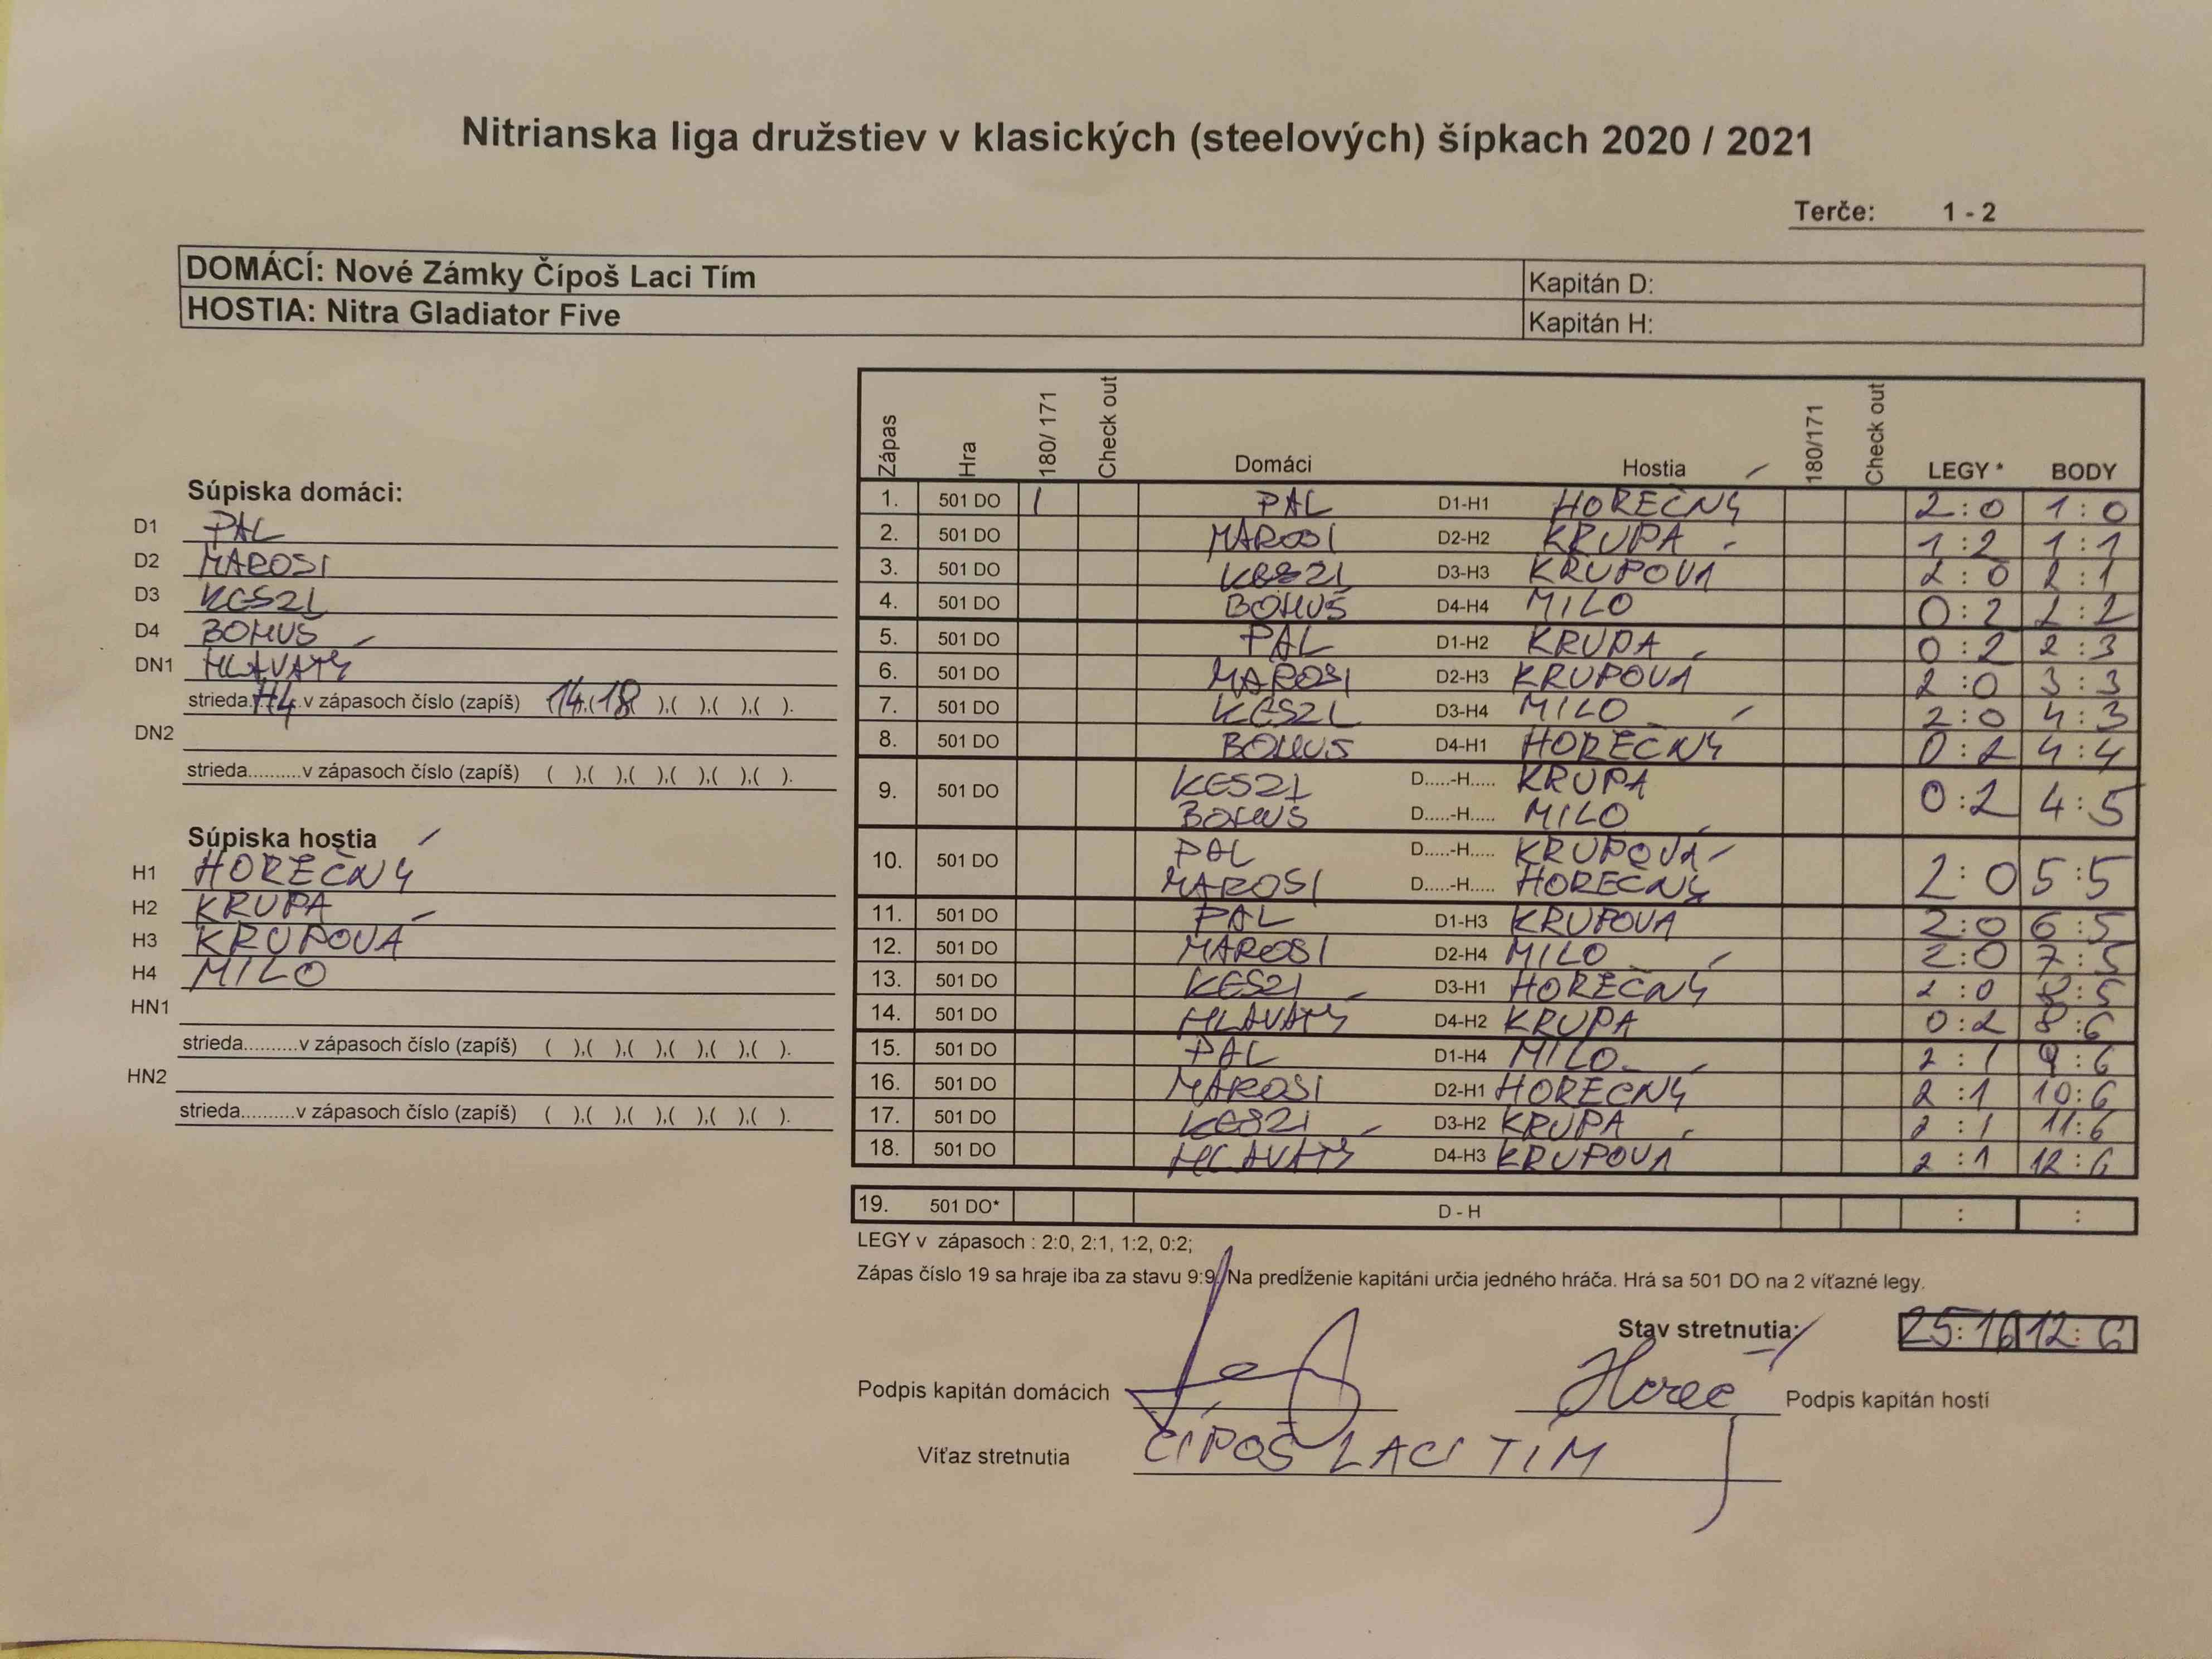 Nitrianska liga družstiev v klasických (steelových) šípkach 2020 / 2021
Terče: 1 - 2
DOMÁCÍ: Nové Zámky Čípoš Laci Tím Kapitán D:
HOSTIA: Nitra Gladiator Five Kapitán H:
Súpiska domáci:
D1 PAL
D2 MAROSI
D3 KESZI
D4 BOHUŠ
DN1 HLAVATÝ
strieda H4 v zápasoch číslo (zapíš) 14.(18 ),( ),( ),( ).
DN2
strieda..........v zápasoch číslo (zapíš) ( ),( ),( ),( ),( ),( ).
Súpiska hostia
H1 HOREČNÝ
H2 KRUPA
H3 KRUPOVÁ
H4 MILO
HN1
strieda..........v zápasoch číslo (zapíš) ( ),( ),( ),( ),( ),( ).
HN2
strieda..........v zápasoch číslo (zapíš) ( ),( ),( ),( ),( ),( ).
Zápas Hra 180/ 171 Check out Domáci Hostia 180/171 Check out LEGY * BODY
1. 501 DO 1 PAL D1-H1 HOREČNÝ 2:0 1:0
2. 501 DO MAROSI D2-H2 KRUPA 1:2 1:1
3. 501 DO KESZI D3-H3 KRUPOVÁ 2:0 2:1
4. 501 DO BOHUŠ D4-H4 MILO 0:2 2:2
5. 501 DO PAL D1-H2 KRUPA 0:2 2:3
6. 501 DO MAROSI D2-H3 KRUPOVÁ 2:0 3:3
7. 501 DO KESZI D3-H4 MILO 2:0 4:3
8. 501 DO BOHUŠ D4-H1 HOREČNÝ 0:2 4:4
9. 501 DO KESZI D.....-H..... KRUPA 0:2 4:5
BOHUŠ D.....-H..... MILO
10. 501 DO PAL D.....-H..... KRUPOVÁ 2:0 5:5
MAROSI D.....-H..... HOREČNÝ
11. 501 DO PAL D1-H3 KRUPOVA 2:0 6:5
12. 501 DO MAROSI D2-H4 MILO 2:0 7:5
13. 501 DO KESZI D3-H1 HOREČNÝ 2:0 8:5
14. 501 DO HLAVATÝ D4-H2 KRUPA 0:2 8:6
15. 501 DO PAL D1-H4 MILO 2:1 9:6
16. 501 DO MAROSI D2-H1 HOREČNÝ 2:1 10:6
17. 501 DO KESZI D3-H2 KRUPA 2:1 11:6
18. 501 DO HLAVATÝ D4-H3 KRUPOVÁ 2:1 12:6
19. 501 DO* D - H : :
LEGY v zápasoch : 2:0, 2:1, 1:2, 0:2;
Zápas číslo 19 sa hraje iba za stavu 9:9. Na predĺženie kapitáni určia jedného hráča. Hrá sa 501 DO na 2 víťazné legy.
Stav stretnutia: 25:16 12:6
Podpis kapitán domácich Podpis kapitán hostí
Víťaz stretnutia ČÍPOŠ LACI TÍM